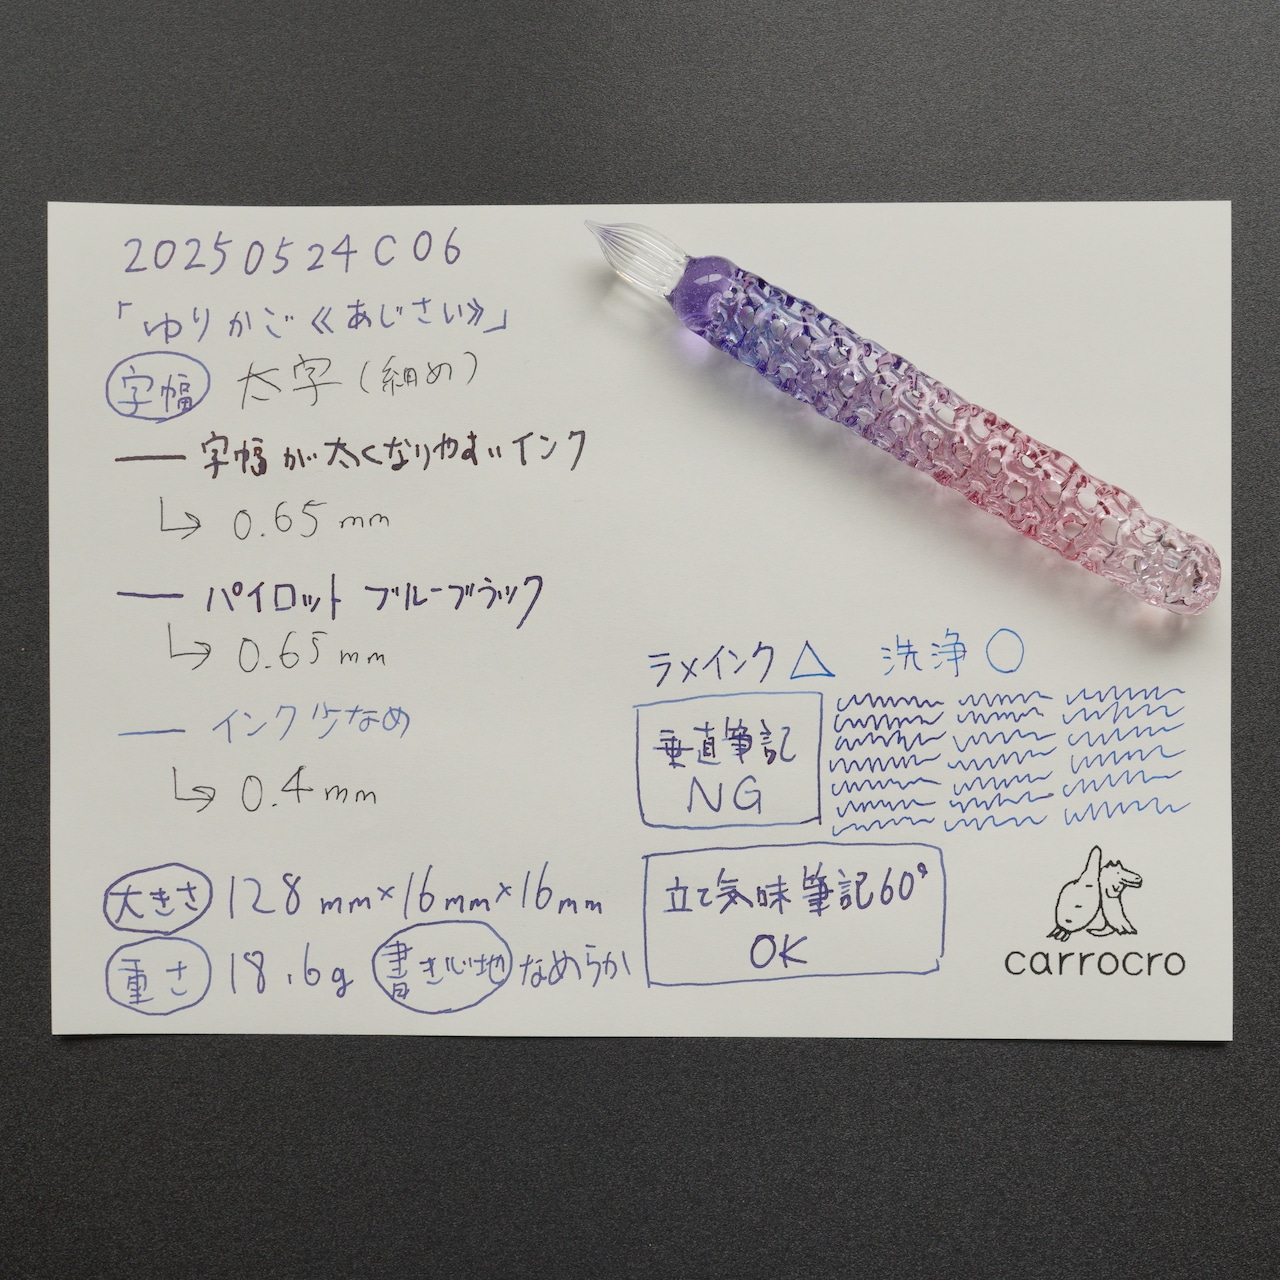 20250524C06
「ゆりかご《あじさい》」
字幅 太字(細め)
字幅が太くなりやすいインク
0.65mm
パイロット ブルーブラック
0.65mm
インク少なめ
0.4mm
大きさ 128mm×16mm×16mm
重さ 18.6g 書き心地 なめらか
ラメインク△ 洗浄○
垂直筆記
NG
立て気味筆記60°
OK
carrocro